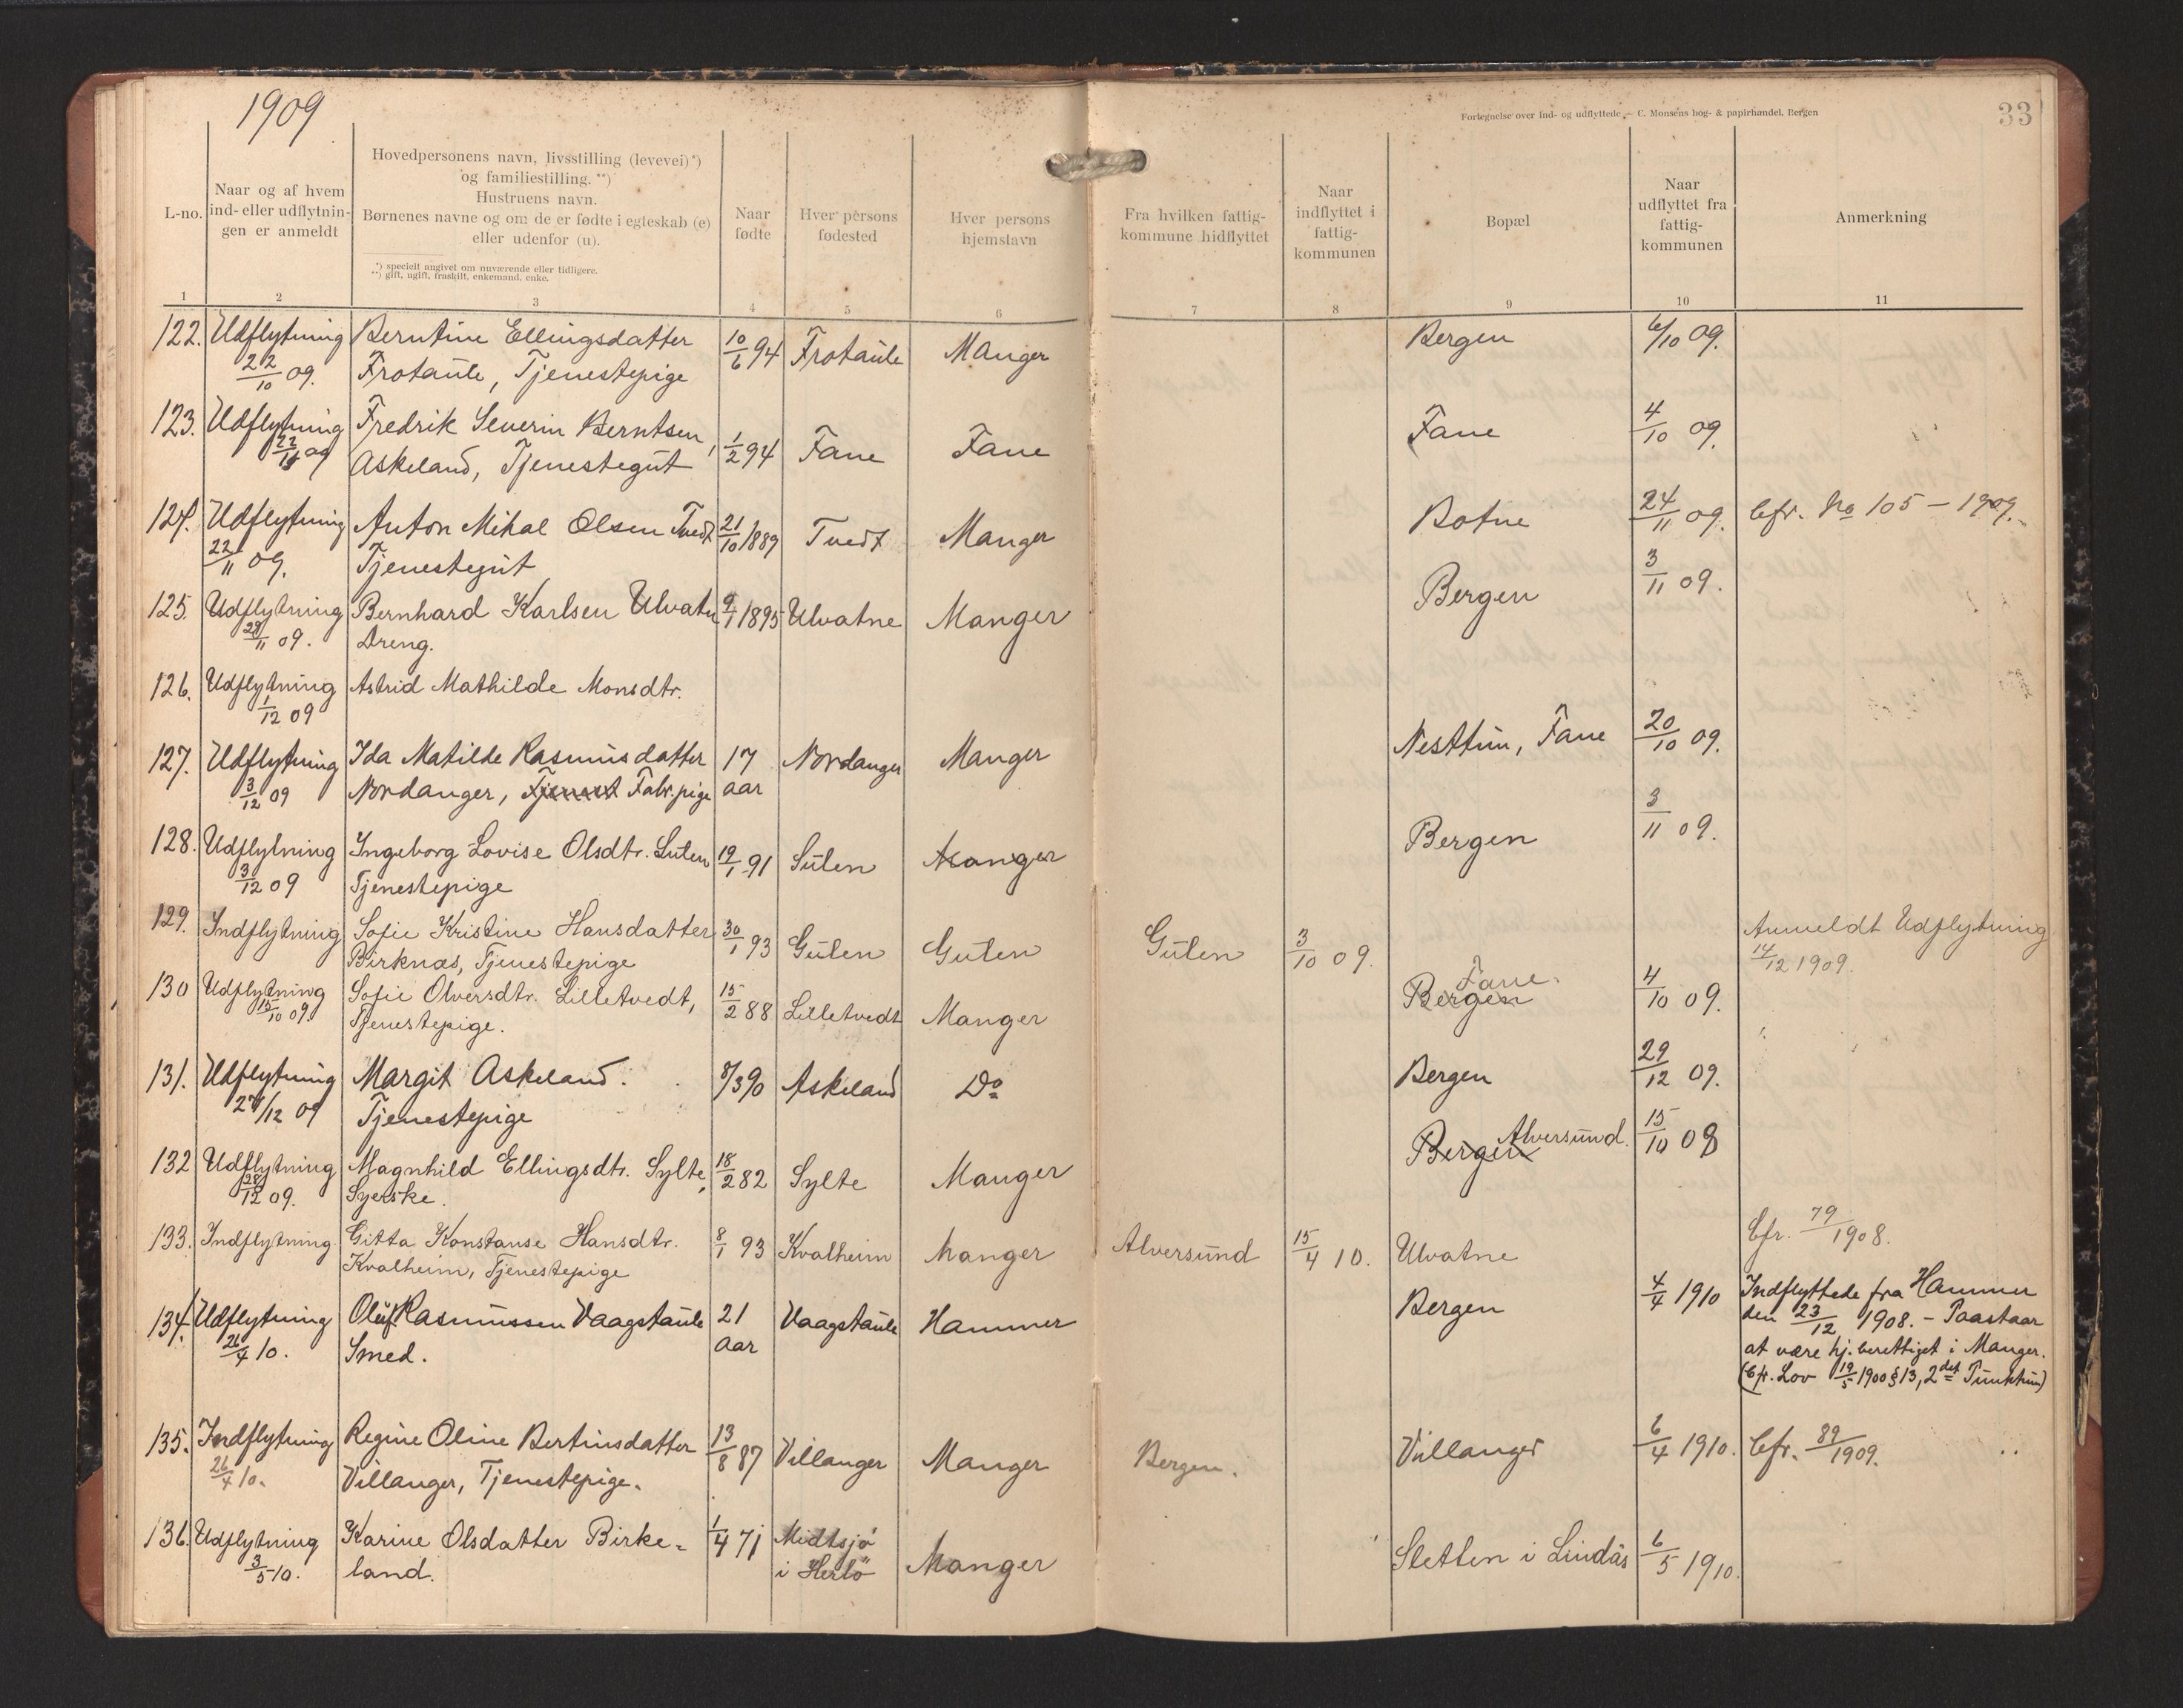 1909
Fortegnelse over ind- og udflyttede. – C. Monsens bog- & papirhandel, Bergen
33
L-no.
Naar og af hvem
ind- eller udflytnin-
gen er anmeldt
Hovedpersonens navn, livsstilling (levevei)*)
og familiestilling. **)
Hustruens navn.
Børnenes navne og om de er fødte i egteskab (e)
eller udenfor (u).
*) specielt angivet om nuværende eller tidligere.
**) gift, ugift, fraskilt, enkemand, enke.
Naar
fødte
Hver persons
fødested
Hver persons
hjemstavn
Fra hvilken fattig-
kommune hidflyttet
Naar
indflyttet i
fattig-
kommunen
Bopæl
Naar
udflyttet fra
fattig-
kommunen
Anmerkning
1 2 3 4 5 6 7 8 9 10 11
122. Udflytning Berntine Ellingsdatter 10/6 94 Frotaule Manger Bergen 6/10 09.
22/10 09. Frotaule, Tjenestepige
123. Udflytning Fredrik Severin Berntsen, 1/2 94 Fane Fane Fane 4/10 09.
22/11 09 Askeland, Tjenestegut
124. Udflytning Anton Mikal Olsen Tvedt 21/10 1889 Tvedt Manger Botne 24/11 09. Cfr. No 105 – 1909.
22/11 09. Tjenestegut
125. Udflytning Bernhard Karlsen Ulvatn 9/1 1895 Ulvatne Manger Bergen 3/11 09.
28/11 09. Dreng.
126. Udflytning Astrid Mathilde Monsdtr.
1/12 09
127. Udflytning Ida Matilde Rasmusdatter 17 Nordanger Manger Nesttun, Fane 20/10 09.
3/12 09 Nordanger, Tjenest Fabr. pige aar
128. Udflytning Ingeborg Lovise Olsdtr. Sulen 19/1 91 Sulen Manger Bergen 3/11 09.
3/12 09 Tjenestepige
129. Indflytning Sofie Kristine Hansdatter 30/1 93 Gulen Gulen Gulen 3/10 09. Anmeldt Udflytning
Birknæs, Tjenestepige 14/12 1909.
Fane.
130 Udflytning Sofie Olversdtr. Lilletvedt, 15/2 88 Lilletvedt Manger Bergen 4/10 09.
15/10 09. Tjenestepige.
131. Udflytning Margit Askeland. 8/3 90 Askeland Do Bergen 29/12 09.
27/12 09 Tjenestepige
132 Udflytning Magnhild Ellingsdtr. Sylte, 18/2 82 Sylte Manger Bergen Alversund. 15/10 08
28/12 09. Syerske.
133. Indflytning Gitta Konstanse Hansdtr. 8/1 93 Kvalheim Manger Alversund 15/4 10. Ulvatne Cfr. 79/1908.
Kvalheim, Tjenestepige
134. Udflytning Oluf Rasmussen Vaagstaule 21 Vaagstaule Hammer Bergen 4/4 1910 Indflyttede fra Hammer
26/4 10. Smed. aar den 23/12 1908. – Paastaar
at være hj.berettiget i Manger.
(Cfr. Lov 19/5 1900 § 13, 2det Punktum)
135. Indflytning Regine Oline Bertinsdatter 13/8 87 Villanger Manger Bergen. Villanger 6/4 1910. Cfr. 89/1909.
26/4 10. Villanger, Tjenestepige.
136. Udflytning Karine Olsdatter Birke- 1/4 71 Midtsjø Manger Sletten i Lindås 6/5 1910.
3/5 10. land. i Herlö